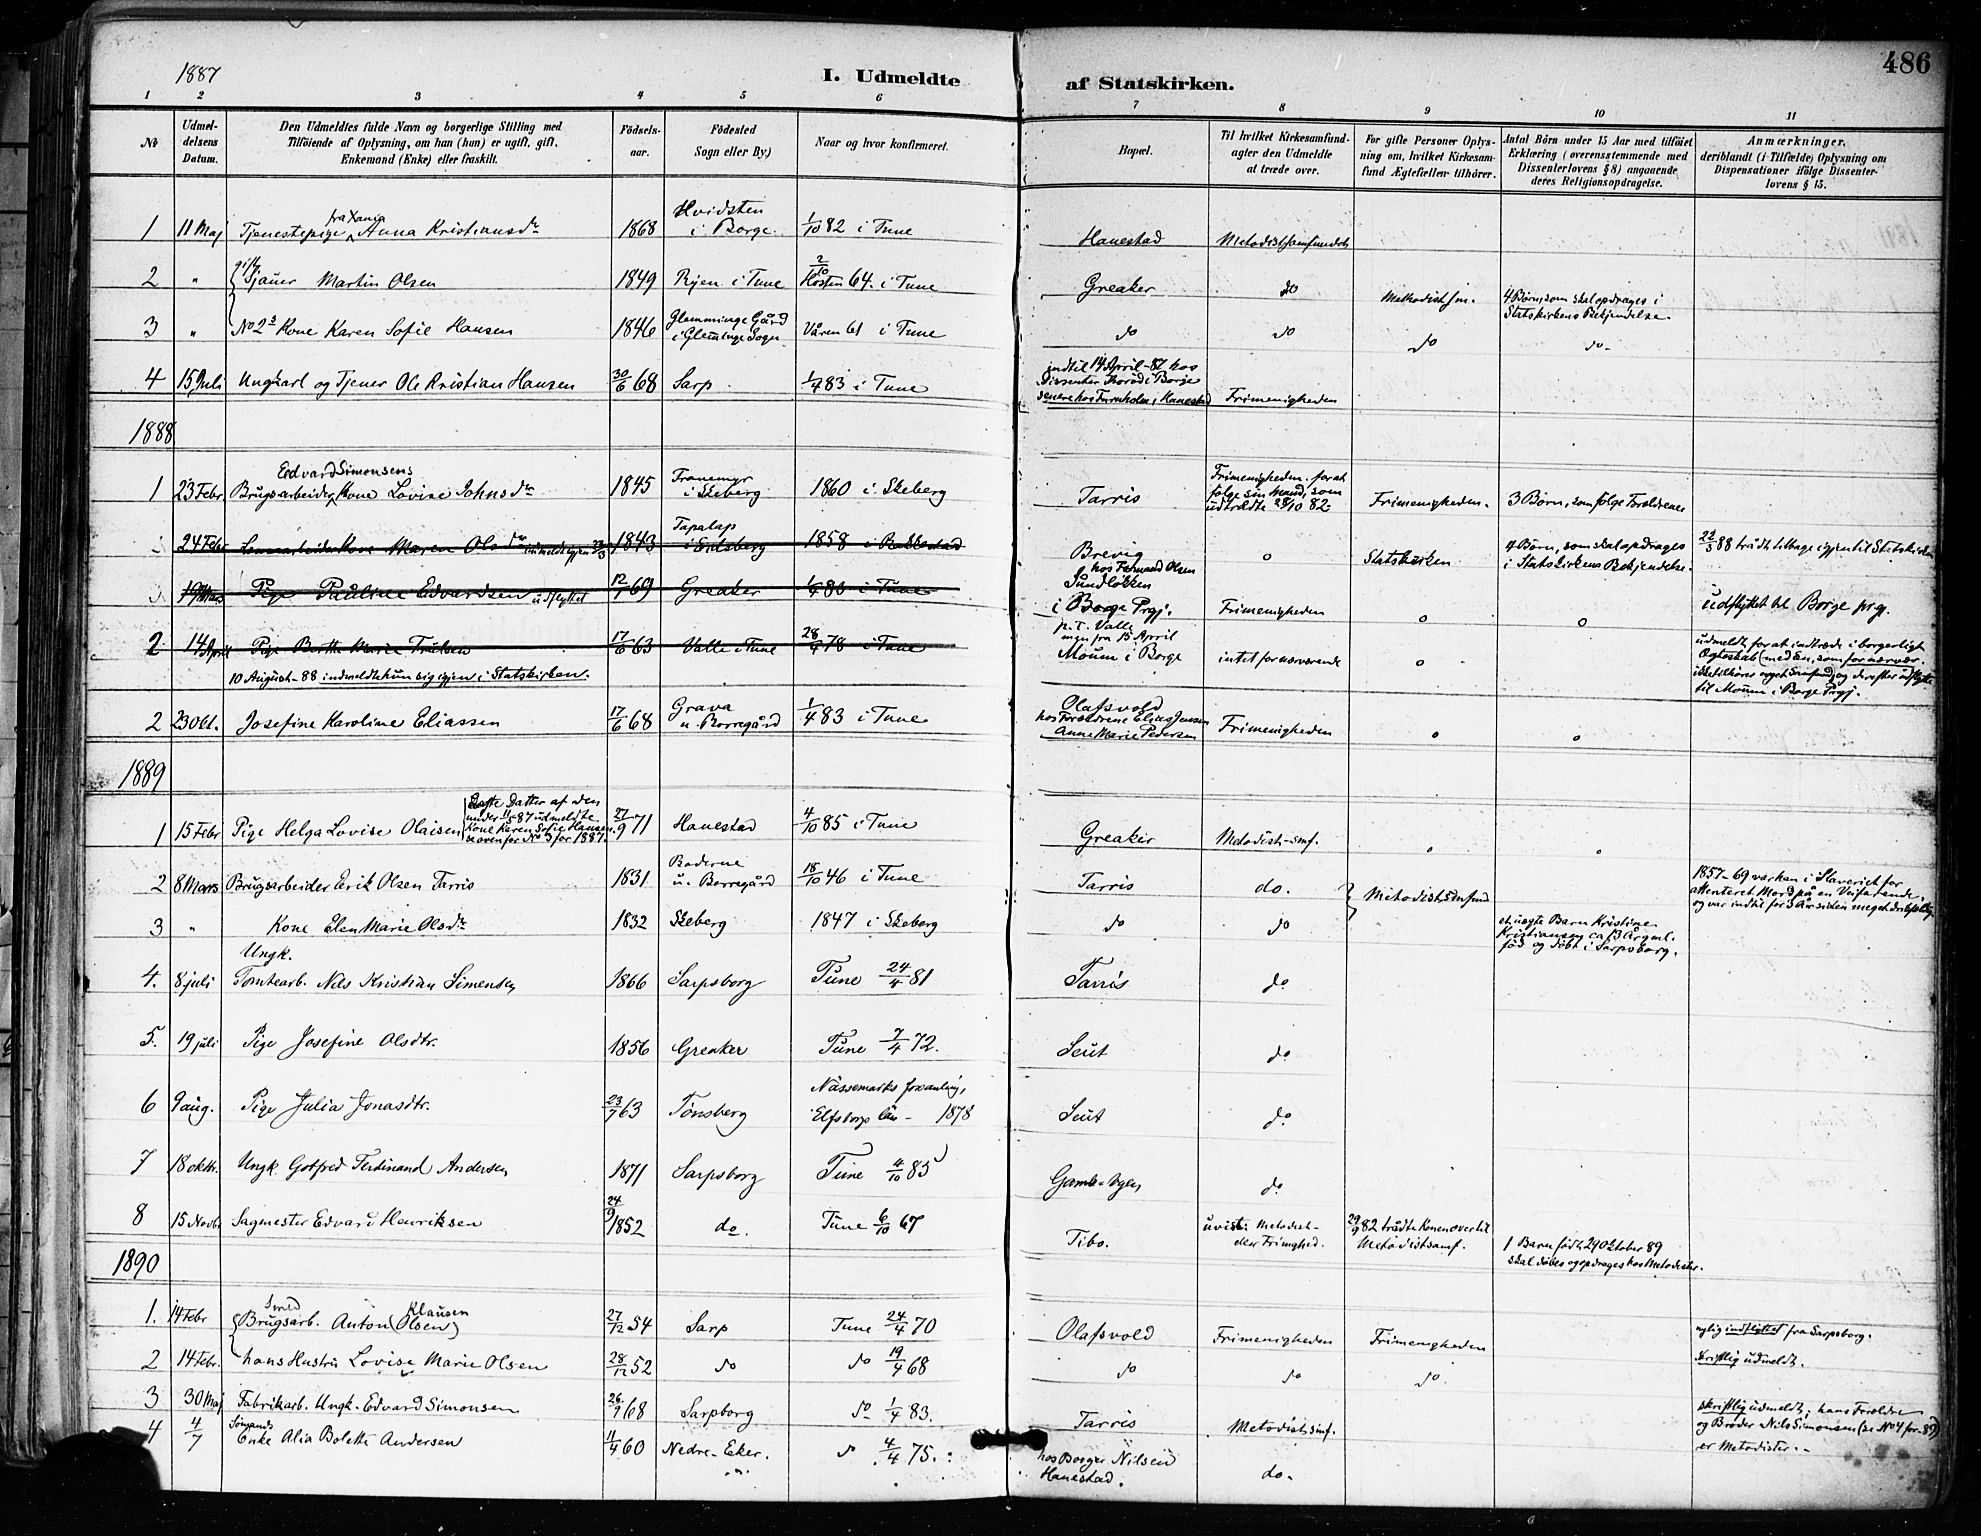 486
1887
I. Udmeldte af Statskirken.
1 2 3 4 5 6 7 8 9 10 11
No
Udmeldelsens Datum.
Den Udmeldtes fulde Navn og borgerlige Stilling med
Tilføiende af Oplysning, om han (hun) er ugift, gift,
Enkemand (Enke) eller fraskilt.
Fødsels-
aar.
Fødested
Sogn eller By)
Naar og hvor konfirmeret.
Bopæl.
Til hvilket Kirkesamfund
agter den Udmeldte
at træde over.
For gifte Personer Oplys-
ning om, hvilket Kirkesam-
fund Ægtefællen tilhører.
Antal Børn under 15 Aar med tilføiet
Erklæring (overensstemmende med
Dissenterlovens § 8) angaaende
deres Religionsopdragelse.
Anmærkninger,
deriblandt (i Tilfælde) Oplysning om
Dispensationer ifølge Dissenter-
lovens § 15.
1 11 Maj Tjenestepige fra Xania Anna Kristiansdr 1868 Hvidsten i Borge 1/10 82 i Tune Hanestad Metodistsamfundet
2 " gift Sjauer Martin Olsen 1849 Ryen i Tune 2/10 Høsten 64. i Tune Greaker do Methodistsm. 4 Børn, som skal opdrages i Statskirkens Bekjendelse.
3 " No 2s Kone Karen Sofie Hansen 1846 Glemminge Gård i Glemminge Sogn Våren 61 i Tune do do do do-
4 15 Juli Ungkarl og Tjener Ole Kristian Hansen 30/6 68 Sarp 1/4 83 i Tune indtil 14 April-87 hos Dissenter i Borge senere hos Furuholm, Hanestad Frimenigheden
1888
1 23 Febr Brugsarbeider Edvard Simonsens Kone Lovise Johnsdr 1845 i Skeberg 1860 i Skeberg Tarris Frimenigheden, for at følge sin Mand, som udtrædte 28/10 82- Frimenigheden. 3 Børn, som følge Forældrene
24 Febr Kone Maren Olsdr indmeldt igjen 22/3 1843 Tapalap i Eidsberg 1858 i Rakkestad Brevig o Statskirken 4 Børn, som skal opdrages i Statskirkens Bekjendelse. 22/3 88 trådt tilbage igjen til Statskirken
19 Mars Pige Pauline Edvardsen udflyttet 12/7 69 Greaker 1/4 83 i Tune hos Fernand Olsen Sundløkken i Borge Prgj. Frimenigheden o o udflyttet til Borge prgj.
2 14 April Pige Berthe Marie Trulsen 17/6 63 Valle i Tune 28/4 78 i Tune p.t. Valle men fra 15 April Moum i Borge intet for nærværende o udmeldt for at indtræde i borgerligt Ægteskab (med En, som for nærvær. ikke tilhører noget Samfund) og derefter udflytte til Moum i Borge Prgj.
10 August-88 indmeldte hun sig igjen i Statskirken.
2 23 Okt. Josefine Karoline Eliassen 17/6 68 Grava u. Borregård 1/4 83 i Tune Olafsvold hos Forældrene Elias Jensen Anne Marie Pedersen Frimenigheden o o
1889
1 15 Febr Pige Helga Lovise Olaisen Datter af den under 11/5 87 udmeldte Kone Karen Sofie Hansen. se ovenfor No 3 for 1887. 27/9 71 Hanestad 4/10 85 i Tune Greaker Metodist-smf.
2 8 Mars Brugsarbeider Erik Olsen Tarris 1831 Boderne u. Borregård 18/10 46 i Tune Tarris do. Metodistsamfund 1857-69 var han i Slaveriet for attenteret Mord på en Veifarende, og var indtil for 3 År siden meget
3 " Kone Elen Marie Olsdr 1832 Skeberg 1847 i Skeberg do do et uægte Barn Kristine Kristiansen ca 13 År gml. fød og døbt i Sarpsborg.
4. 8 juli Ungk. Tomtearb. Nils Kristian Simensen 1866 Sarpsborg Tune 24/4 81 Tarris do
5. 19 juli Pige Josefine Olsdtr. 1856 Greaker Tune 7/4 72. Seut do
6 9 aug. Pige Julia Jonasdtr. 23/7 63 Tønsberg Nässemarks församling, Elfsborgs län - 1878 Seut do
7 18 oktb. Ungk. Gotfred Ferdinand Andersen 1871 Sarpsborg Tune 4/10 85 do
8 15 Novbr Sagmester Edvard Henriksen 24/9 1852 do. Tune 6/10 67 Tibo. uvist: Metodist- eller Frimghed. 29/9 82 trådte Konen over til Metodistsamf. 1 Barn født 29 Oktober 89 skal døbes og opdrages hos Metodister.
1890
1. 14 Febr Smed Brugsarb. Anton Klausen (Olsen) 27/12 54 Sarp Tune 24/4 70 Olafsvold Frimenigheden Frimenigheden nylig indflyttet fra Sarpsborg.
2 14 Febr. hans Hustru Lovise Marie Olsen 28/12 52 do do 19/4 68 do do do. skriftlig udmeldt.
3 30 Maj Fabrikarb. Ungk. Edvard Simonsen 26/7 68 Sarpborg do 1/4 83. Tarris Metodistsmf. skriftlig udmeldt; hans Forældre og Broder Nils Simonsen (se No 4 for-89) er Metodister.-
4 4/7 Sømands Enke Alia Bolette Andersen 11/4 60 Nedre-Eker. do 4/4 75. hos Borger Nilsen Hanestad. do.